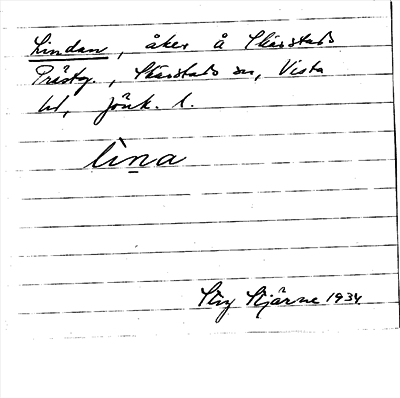 Lindan, åker å Skärstads
Prästg., Skärstads sn, Vista
hd, Jönk. l.
lìna
Stig Stjärne 1934